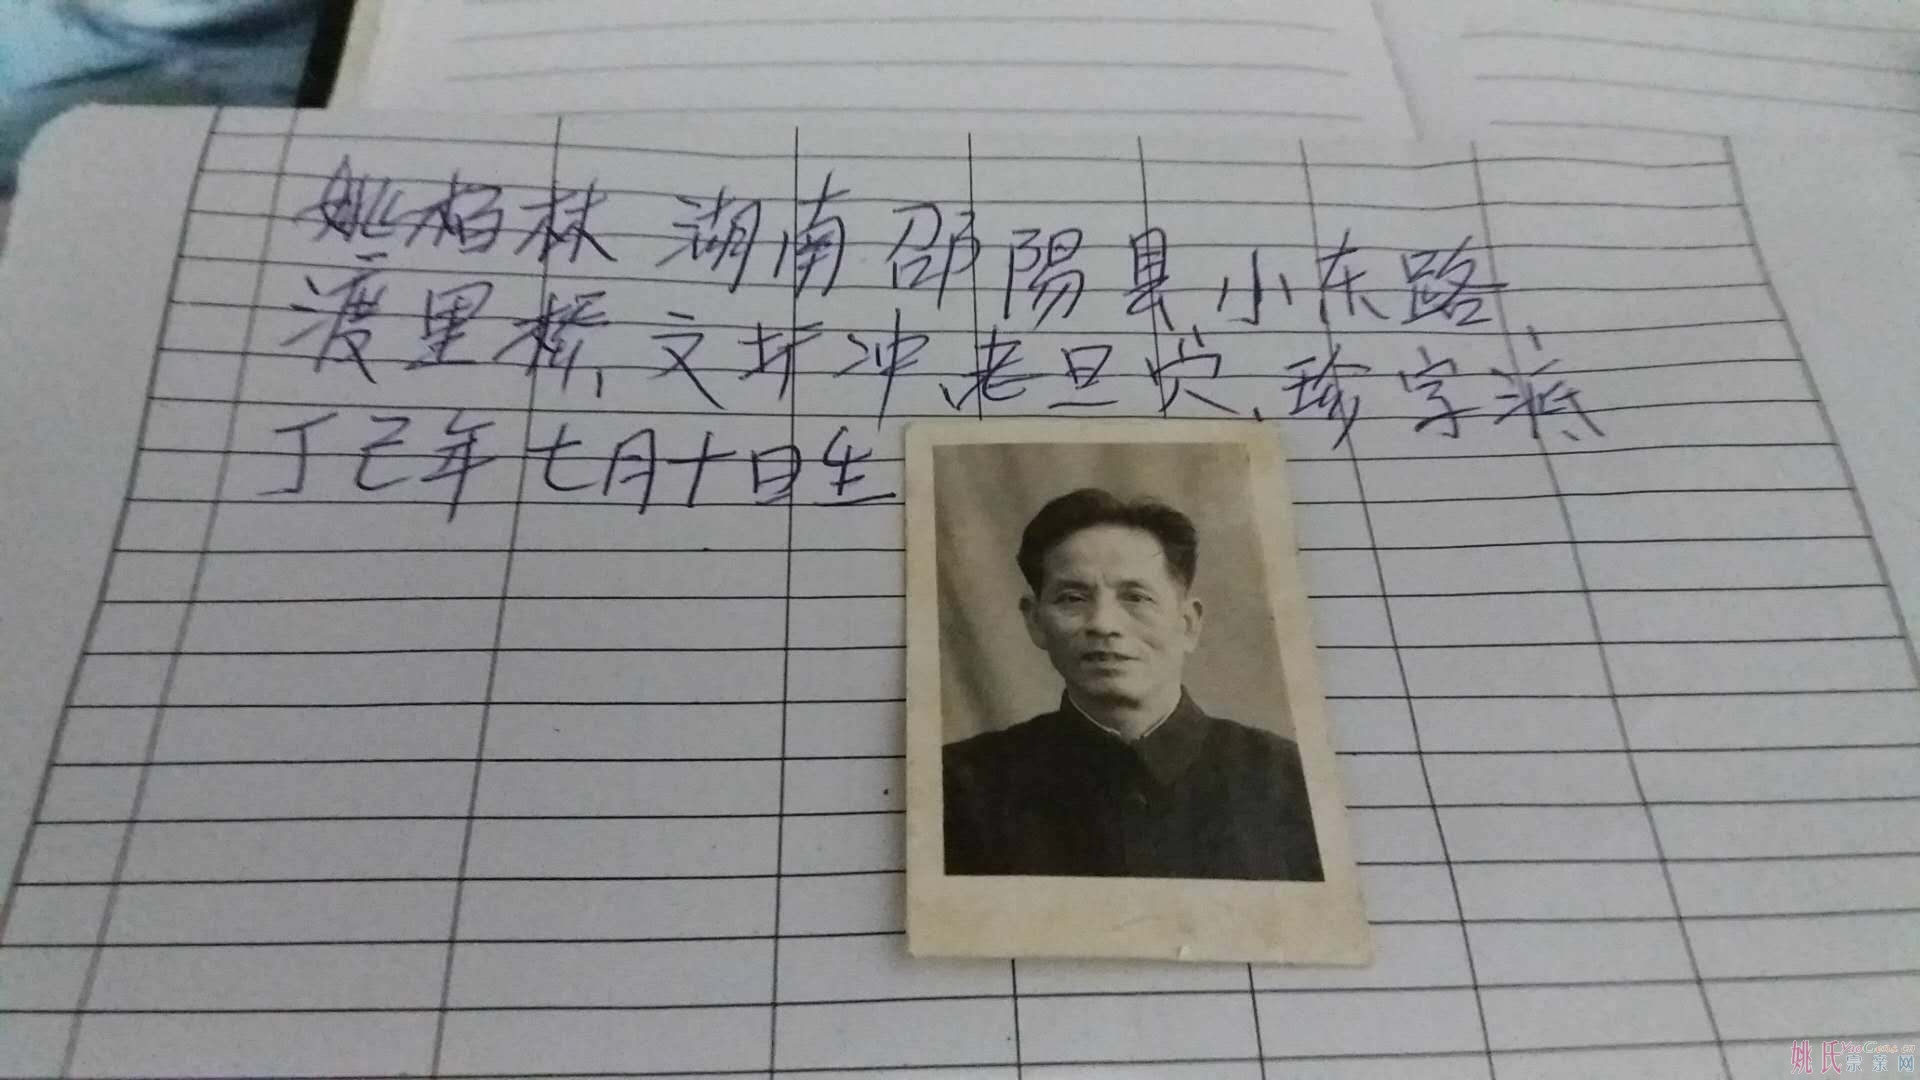 姚柏林 湖南邵阳县小东路
渡里桥、文圹冲、老旦穴、珍字派
丁己年七月十日生
姚氏宗亲网